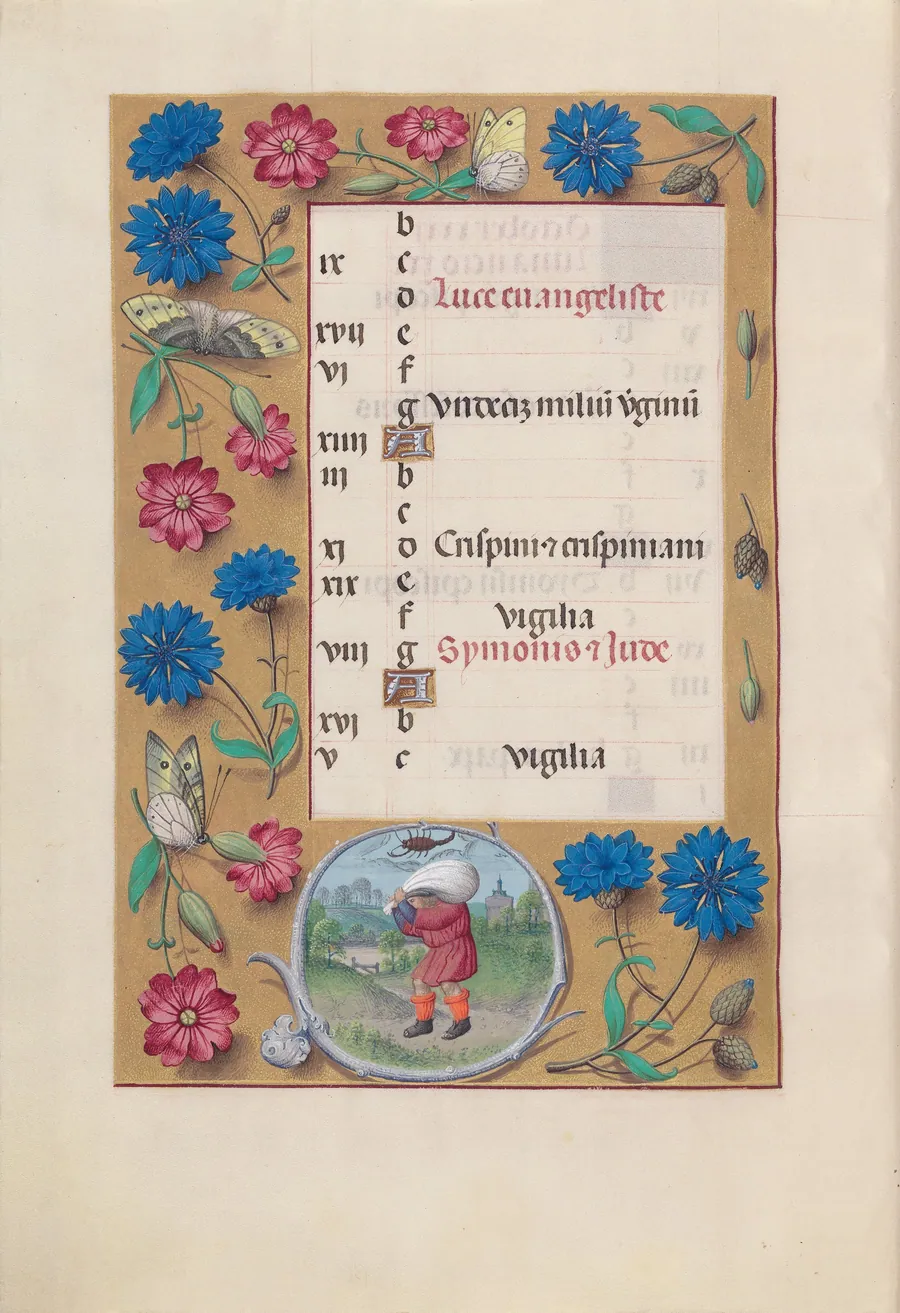 b
ix c
d Luce euangeliste
xvij e
vj f
g Vndeciꝫ miliū v̄ginū
xiiij A
iij b
c
xj d Crispini ⁊ crispiniani
xix e
f vigilia
viij g Symonis ⁊ Jude
A
xvj b
v c vigilia